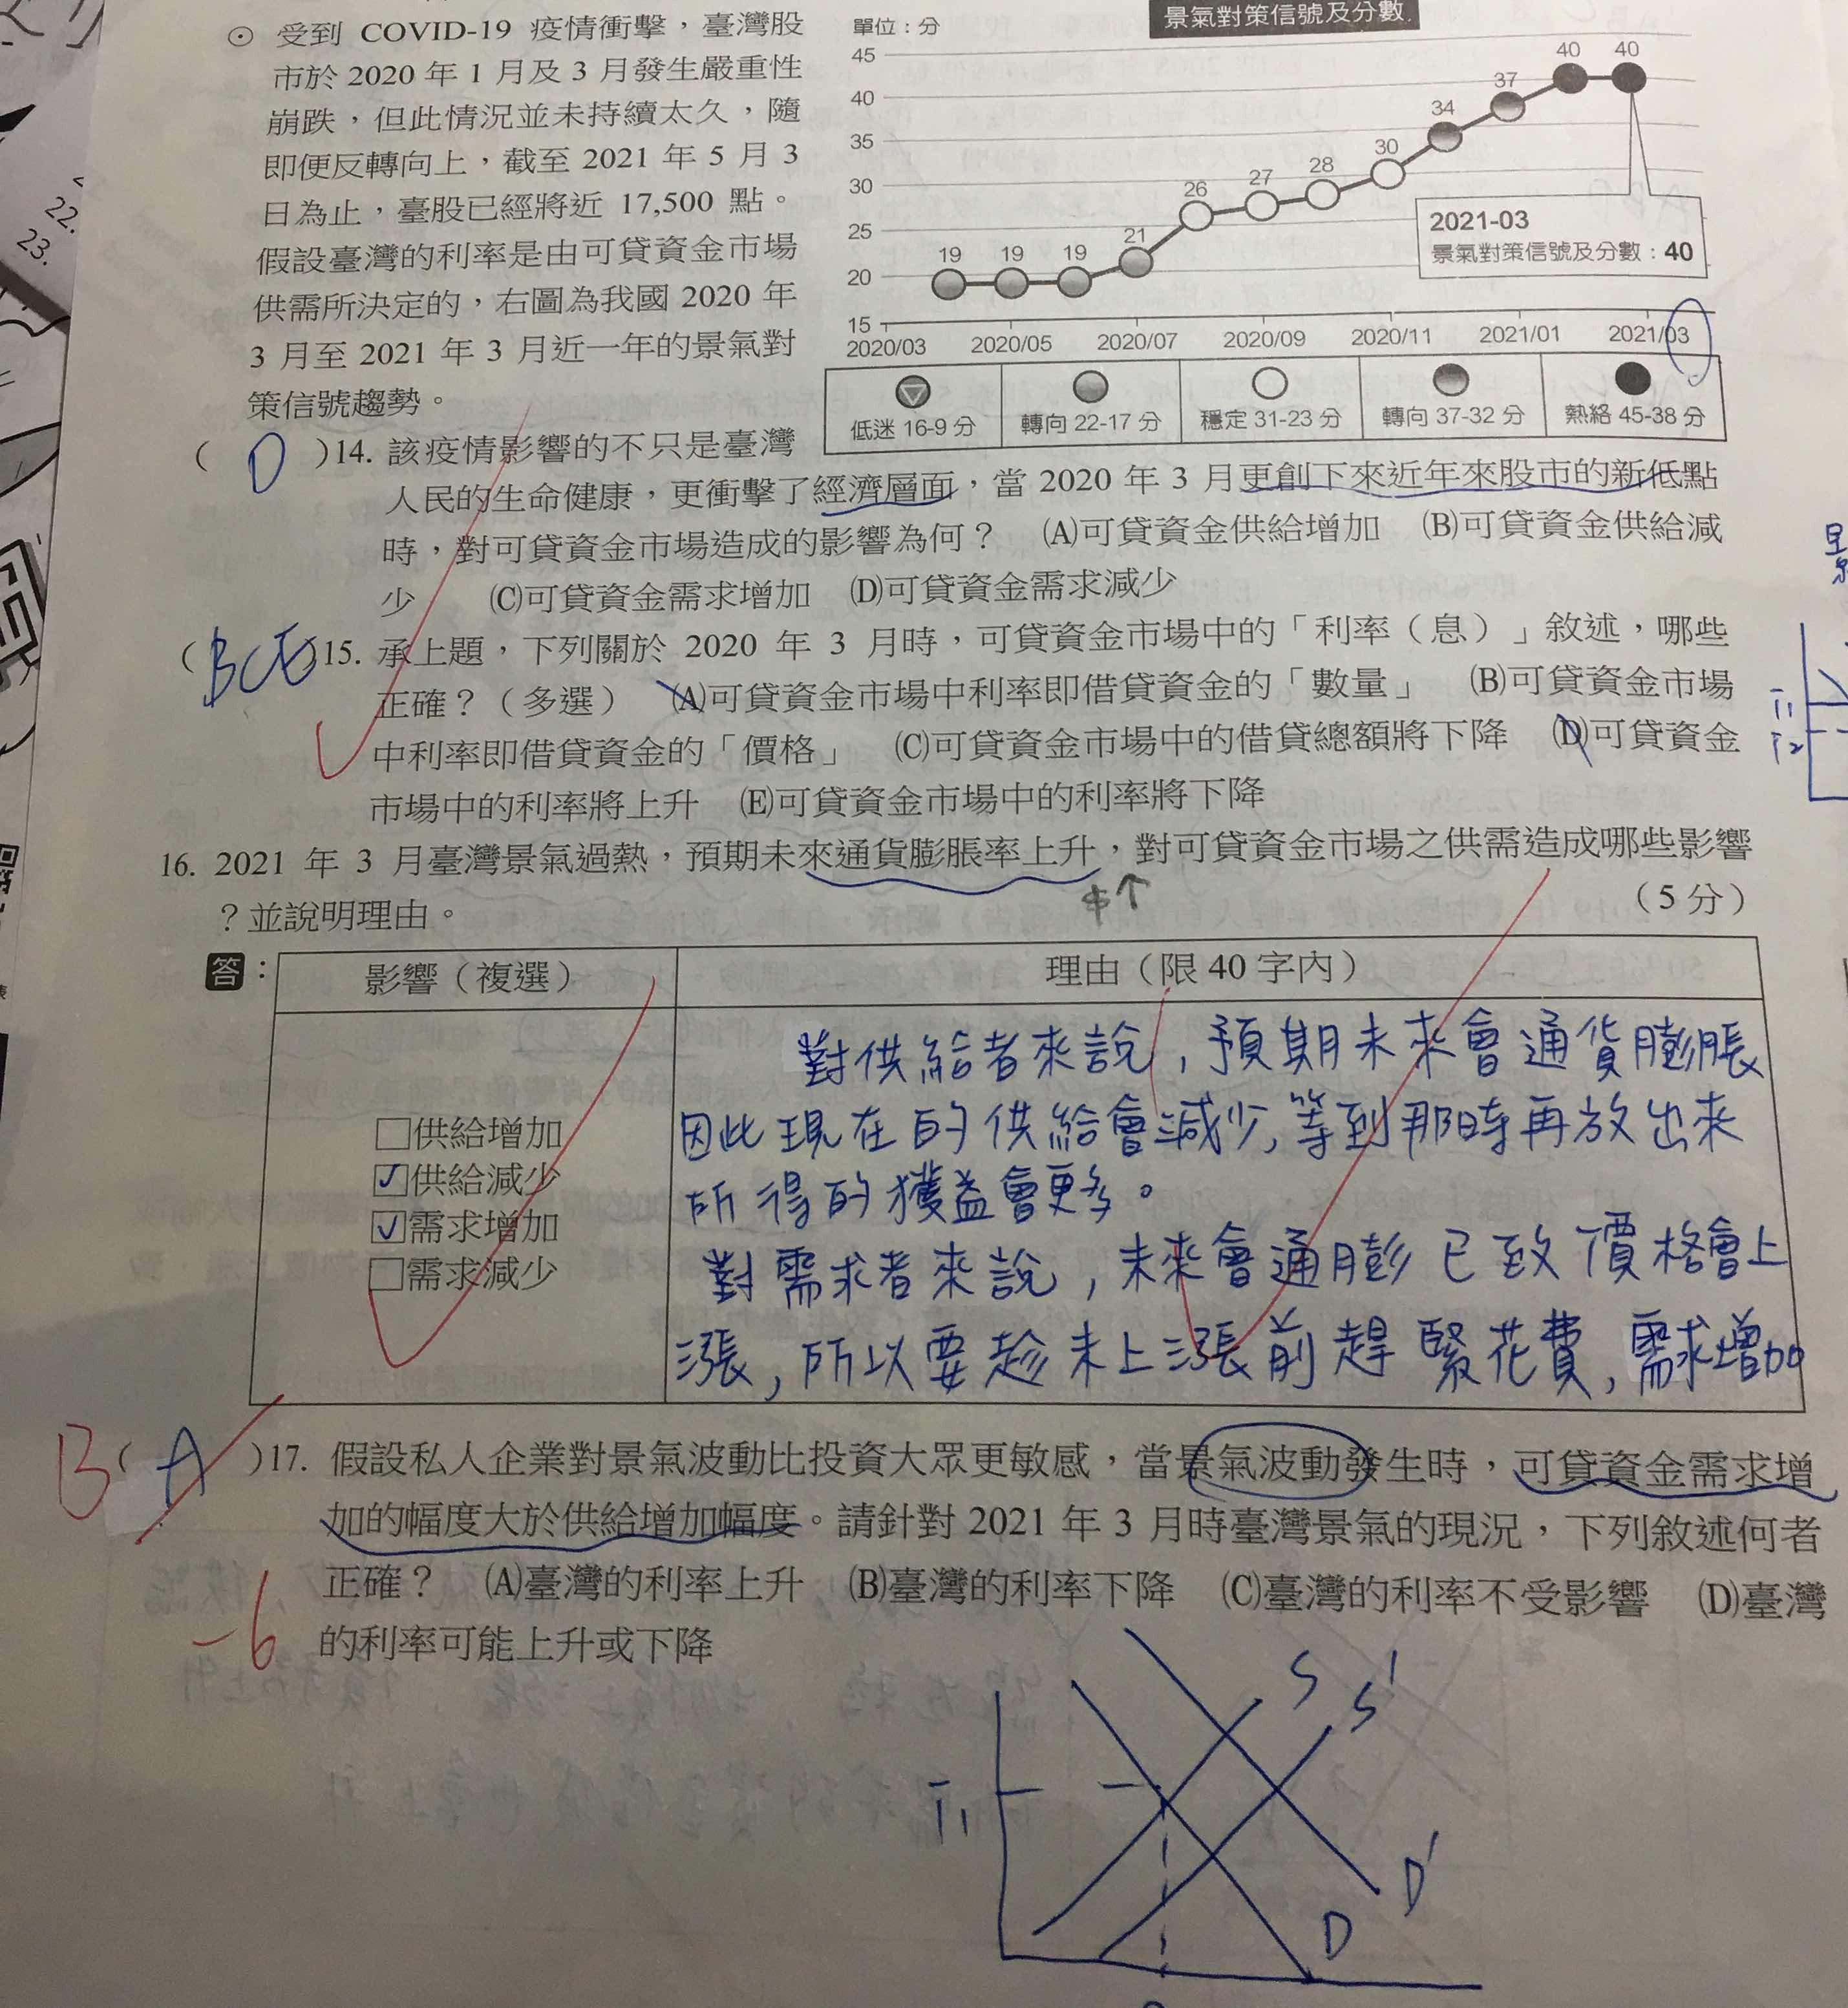 ⊙ 受到 COVID-19 疫情衝擊，臺灣股
市於 2020 年 1 月及 3 月發生嚴重性
崩跌，但此情況並未持續太久，隨
即便反轉向上，截至 2021 年 5 月 3
日為止，臺股已經將近 17,500 點。
假設臺灣的利率是由可貸資金市場
供需所決定的，右圖為我國 2020 年
3 月至 2021 年 3 月近一年的景氣對
策信號趨勢。
22.
23.
單位：分
景氣對策信號及分數
45
40
35
30
25
20
15
19 19 19 21 26 27 28 30 34 37 40 40
2021-03
景氣對策信號及分數：40
2020/03 2020/05 2020/07 2020/09 2020/11 2021/01 2021/03
低迷 16-9 分 轉向 22-17 分 穩定 31-23 分 轉向 37-32 分 熱絡 45-38 分
( D )14. 該疫情影響的不只是臺灣
人民的生命健康，更衝擊了經濟層面，當 2020 年 3 月更創下來近年來股市的新低點
時，對可貸資金市場造成的影響為何？ (A)可貸資金供給增加 (B)可貸資金供給減
少 (C)可貸資金需求增加 (D)可貸資金需求減少
( BCE )15. 承上題，下列關於 2020 年 3 月時，可貸資金市場中的「利率（息）」敘述，哪些
正確？（多選） (A)可貸資金市場中利率即借貸資金的「數量」 (B)可貸資金市場
中利率即借貸資金的「價格」 (C)可貸資金市場中的借貸總額將下降 (D)可貸資金
市場中的利率將上升 (E)可貸資金市場中的利率將下降
16. 2021 年 3 月臺灣景氣過熱，預期未來通貨膨脹率上升，對可貸資金市場之供需造成哪些影響
？並說明理由。 （5 分）
$↑
答：
影響（複選） 理由（限 40 字內）
□供給增加
☑供給減少
☑需求增加
□需求減少
對供給者來說，預期未來會通貨膨脹
因此現在的供給會減少，等到那時再放出來
所得的獲益會更多。
對需求者來說，未來會通膨已致價格會上
漲，所以要趁未上漲前趕緊花費，需求增加
B ( A )17. 假設私人企業對景氣波動比投資大眾更敏感，當景氣波動發生時，可貸資金需求增
加的幅度大於供給增加幅度。請針對 2021 年 3 月時臺灣景氣的現況，下列敘述何者
正確？ (A)臺灣的利率上升 (B)臺灣的利率下降 (C)臺灣的利率不受影響 (D)臺灣
的利率可能上升或下降
-6
S
S'
D'
D